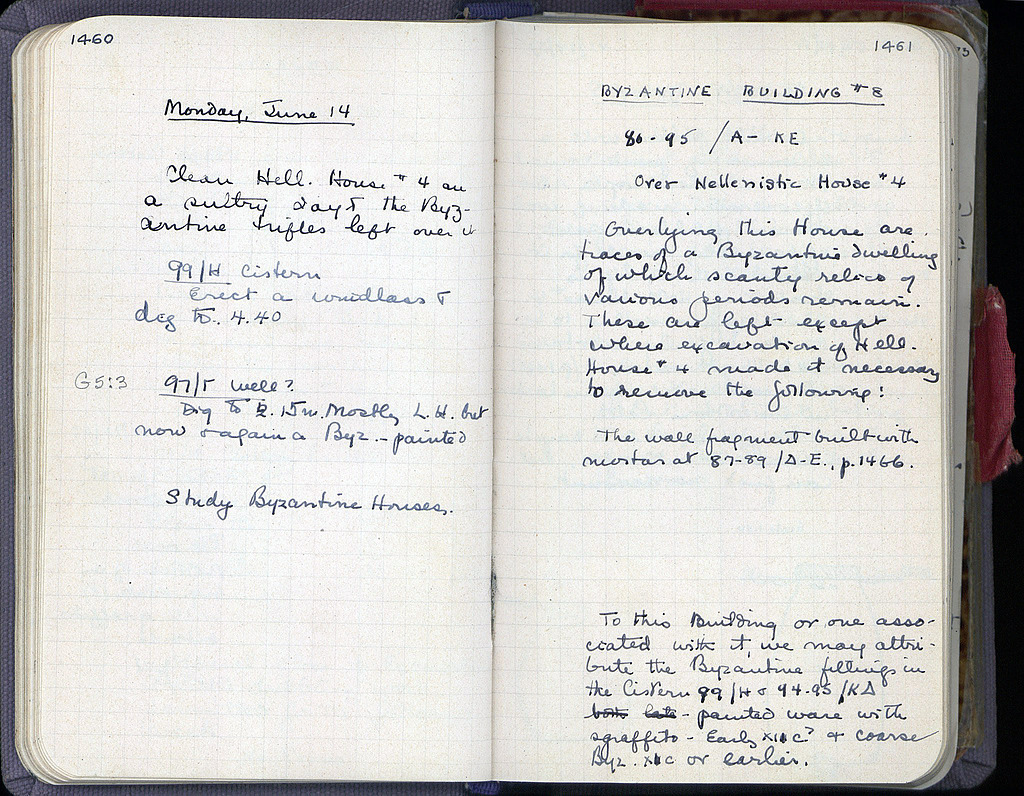 1460
Monday, June 14
Clean Hell. House #4 on
a sultry day & the Byz-
antine trifles left over it
99/H Cistern
Erect a windlass &
dig to. 4.40
G5:3 97/Γ Well?
Dig to 2.15m. Mostly L.H. but
now & again a Byz. - painted
Study Byzantine Houses.
1461
BYZANTINE BUILDING #8
80-95 /A- KE
Over Hellenistic House #4
Overlying this House are
traces of a Byzantine dwelling
of which scanty relics of
various periods remain.
These are left except
where excavation of Hell.
House #4 made it necessary
to remove the following:
The wall fragment built with
mortar at 87-89 /Δ-E., p.1466.
To this Building or one asso-
ciated with it, we may attri-
bute the Byzantine fillings in
the Cistern 99/H & 94-95/KΔ
both late - painted ware with
sgraffito - Early XII C? & coarse
Byz. XI C or earlier.